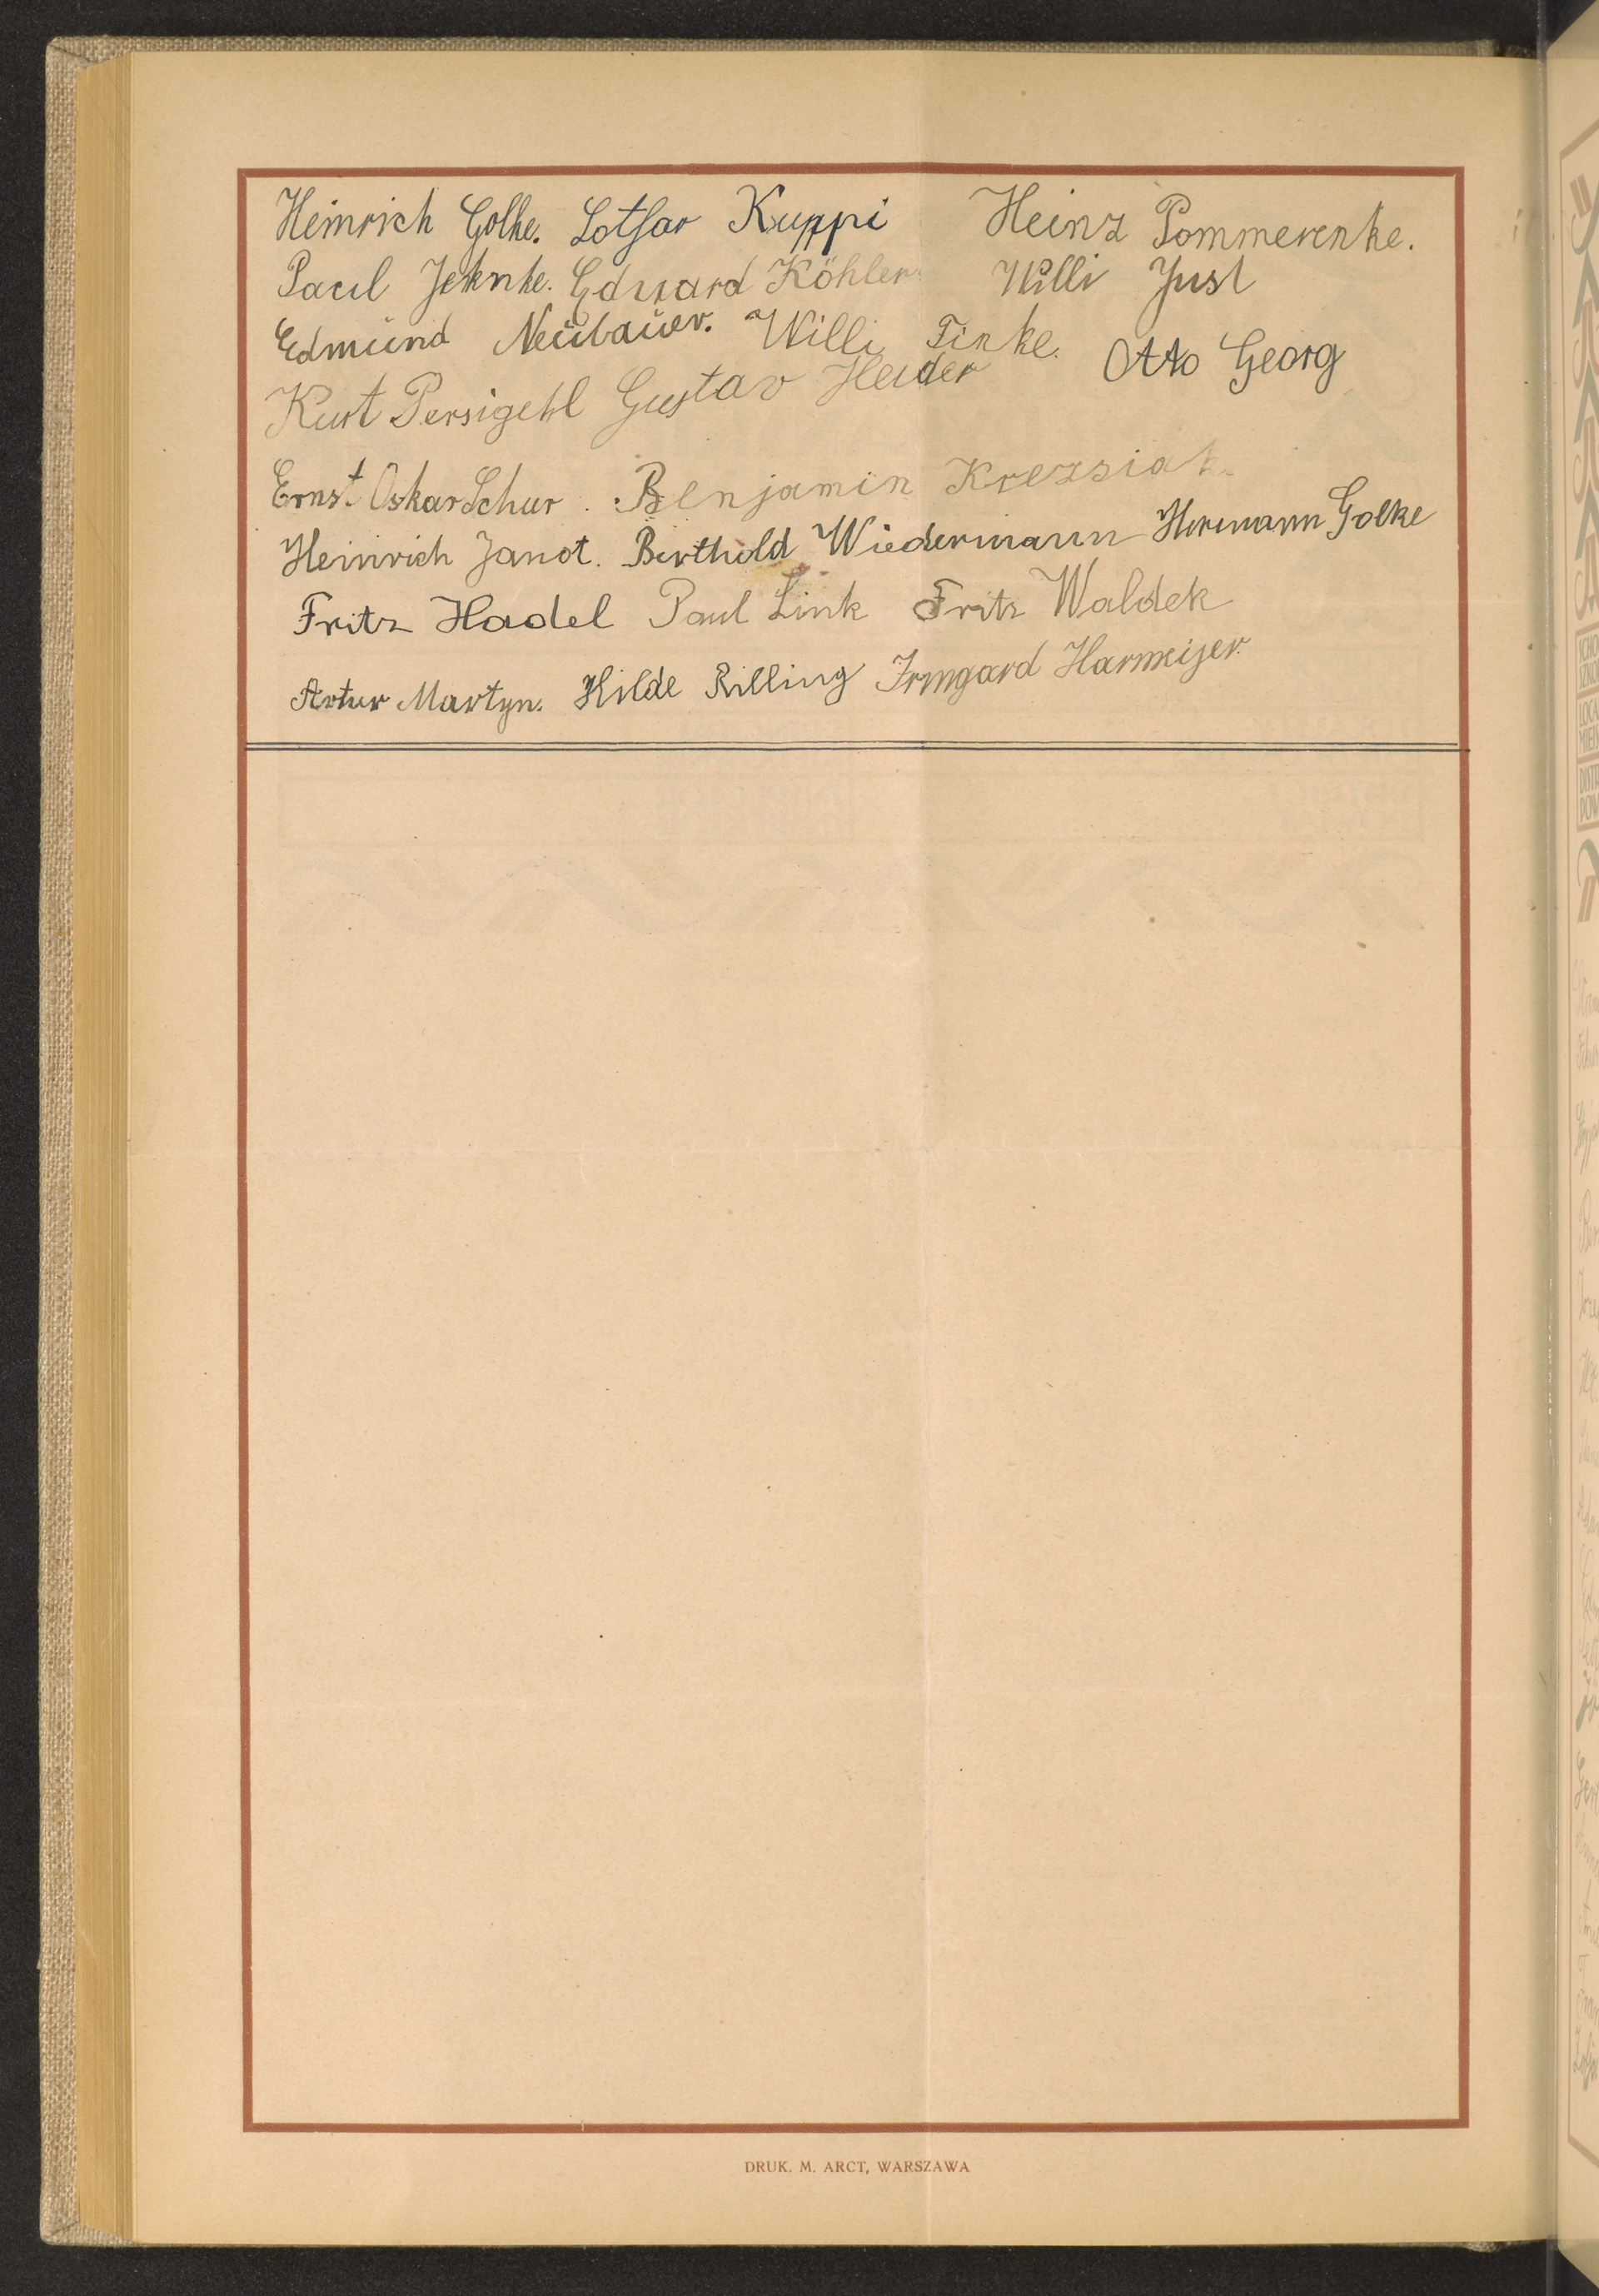 Heinrich Golke. Lothar Kuppi Heinz Pommerenke.
Paul Jehnke. Eduard Köhler Willi Just
Edmund Neubauer. Willi Finke. Otto Georg
Kurt Persigehl Gustav Heider
Ernst Oskar Schur. Benjamin Krezsiak
Heinrich Janot. Berthold Wiedermann Hermann Golke
Fritz Hadel Paul Link Fritz Waldek
Artur Martyn. Hilde Rilling Irmgard Harmeijer.
DRUK. M. ARCT, WARSZAWA